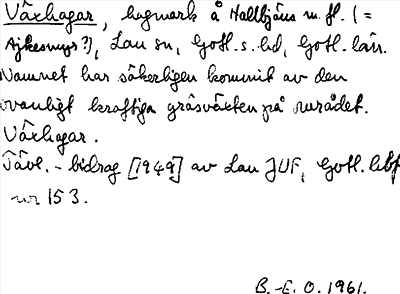 Växhagar, hagmark å Hallbjäns m. fl. (=
Ajkesmyr?), Lau sn, Gotl. s. hd, Gotl. län.
Namnet har säkerligen kommit av den
ovanligt kraftiga gräsväxten på området.
Växhagar.
Tävl.-bidrag [1949] av Lau JUF, Gotl. lebf
nr 153.
B.-E. O. 1961.